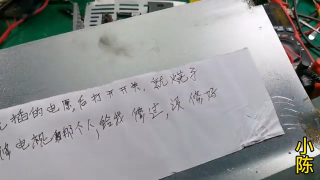 插的电源后打开开关，就烧了
修电视那个人，给我修过，没修好
小陈